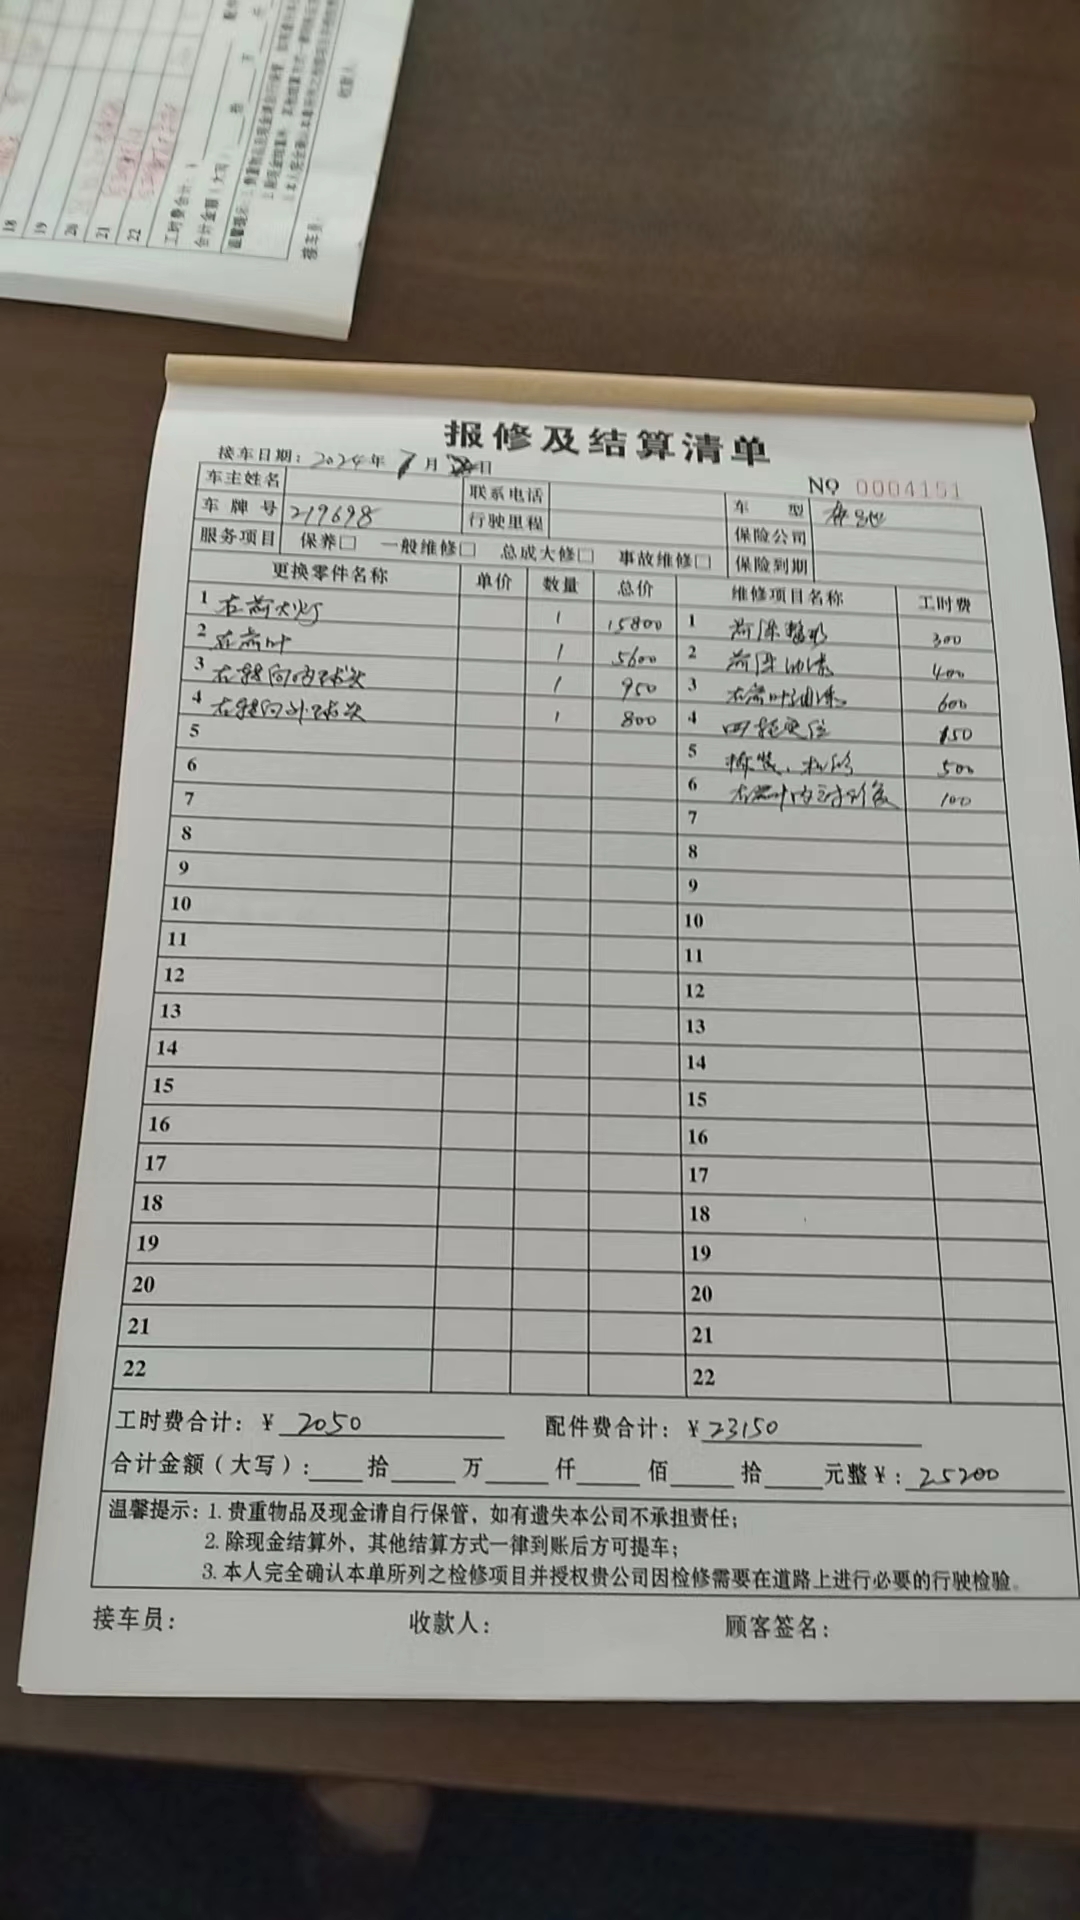 报修及结算清单
接车日期：2024年7月 日
NO 0004151
车主姓名 联系电话 车型 奔驰
车牌号 219698 行驶里程 保险公司
服务项目 保养□ 一般维修□ 总成大修□ 事故维修□ 保险到期
更换零件名称 单价 数量 总价 维修项目名称 工时费
1 右前大灯 1 15800 1 前床整形 300
2 右前叶 1 5600 2 前床油漆 400
3 右转向内球头 1 950 3 右前叶油漆 600
4 右转向外球头 1 800 4 四轮定位 150
5 5 拆装、机修 500
6 6 右前叶内衬修复 100
7 7
8 8
9 9
10 10
11 11
12 12
13 13
14 14
15 15
16 16
17 17
18 18
19 19
20 20
21 21
22 22
工时费合计：¥ 2050 配件费合计：¥ 23150
合计金额（大写）： 拾 万 仟 佰 拾 元整¥：25200
温馨提示：1.贵重物品及现金请自行保管，如有遗失本公司不承担责任；
2.除现金结算外，其他结算方式一律到账后方可提车；
3.本人完全确认本单所列之检修项目并授权贵公司因检修需要在道路上进行必要的行驶检验。
接车员： 收款人： 顾客签名：
18
19
20
21
22
工时费合计：
合计金额（大写）：
温馨提示：
接车员：
收款人